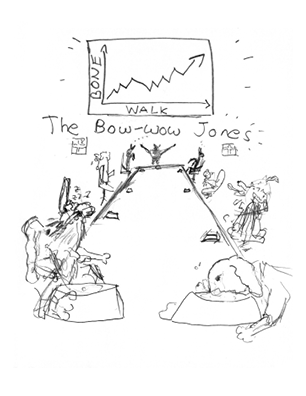 BONE
WALK
The Bow-wow Jones